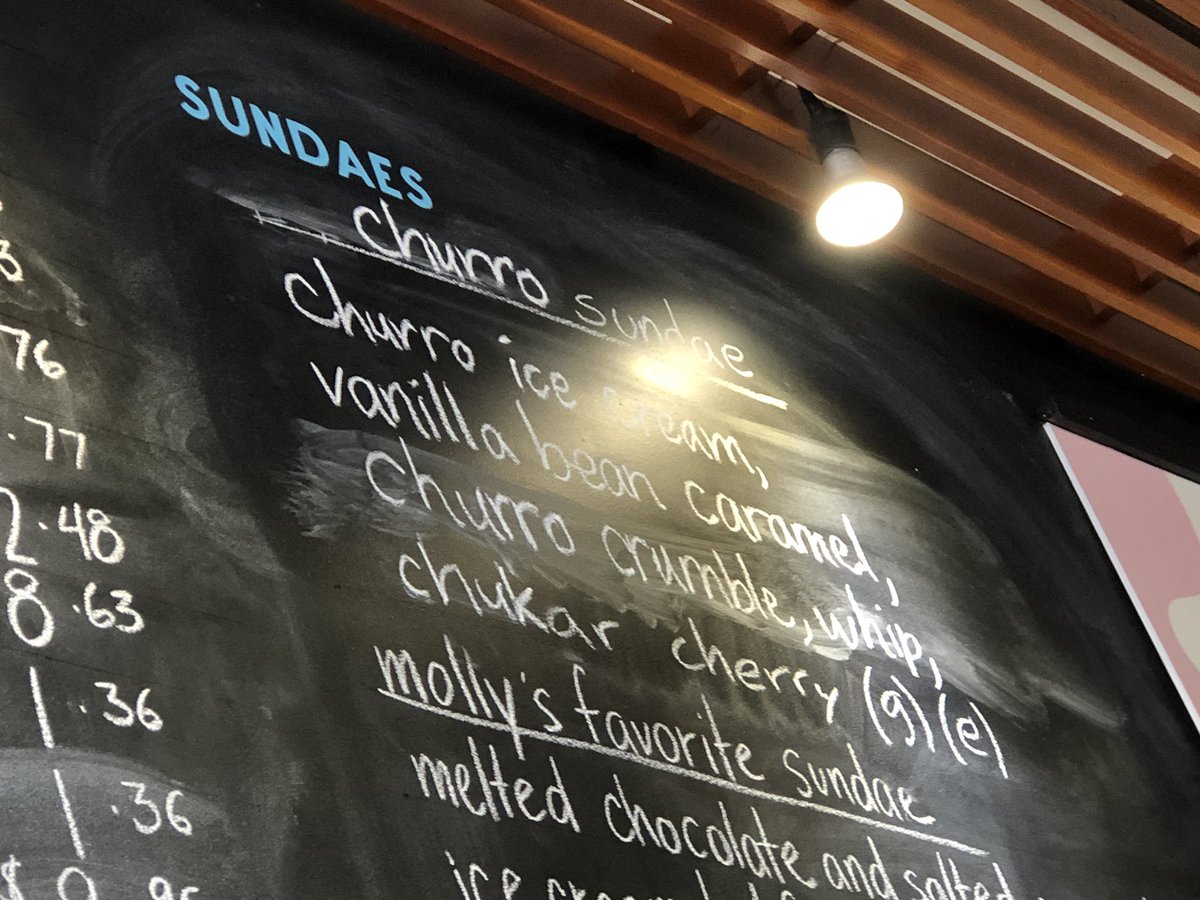 SUNDAES
churro sundae
churro ice cream,
vanilla bean caramel,
churro crumble, whip,
chukar cherry (g)(e)
molly's favorite sundae
melted chocolate and salted
ice cream
76
.77
2.48
8.63
1.36
1.36